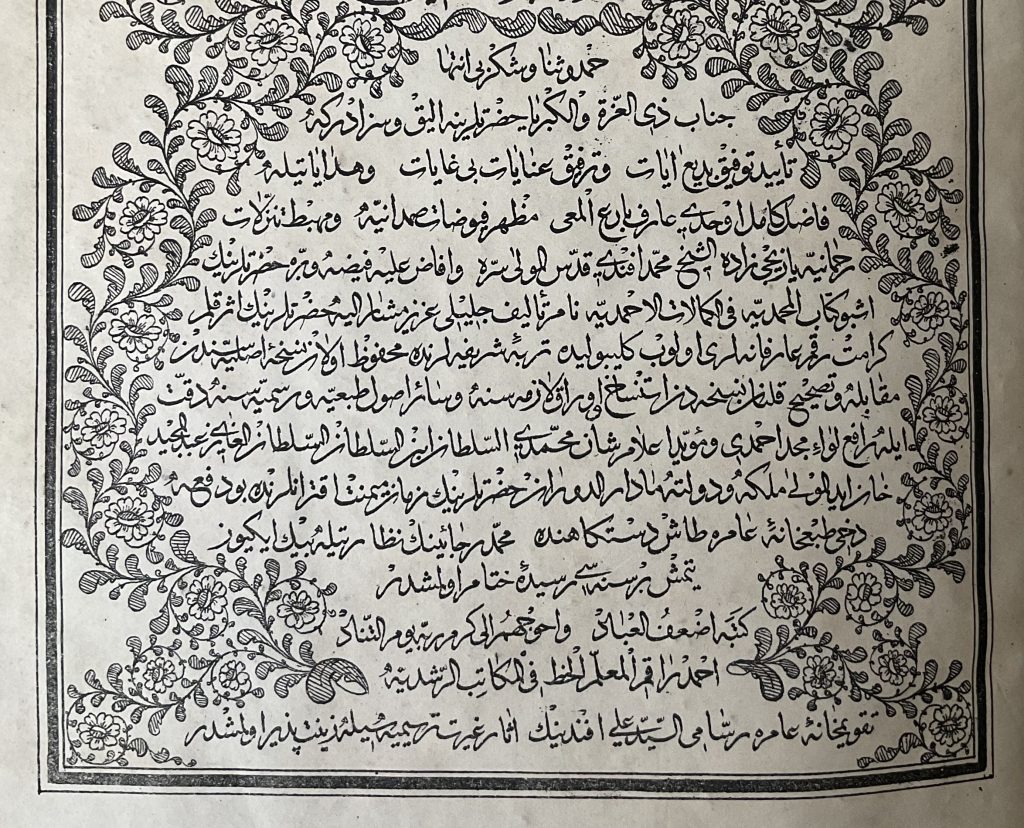 حمد و ثنا و شكر بى انتها
جناب ذى العزة والكبريا حضرتلرينه اليق و سزادركه
تأييد توفيق بديع آيات و ترفيق عنايات بى غايات و هداياتيله
فاضل كامل اوحدى عارف بارع المعى مظهر فيوضات صمدانيه و مهبط تنزلات
رحمانيه يازيجى زاده الشيخ محمد افندى قدس المولى سره و افاض عليه فيضه و بره حضرتلرينك
اشبو كتاب المحمديه فى الكمالات الاحمديه نام تأليف جليلى عزيز مشار اليه حضرتلرينك اثر قلم
كرامت رقم عارفانه لرى اولوب كليبوليده تربۀ شريفه لرنده محفوظ اولان نسخۀ اصليه سندن
مقابله و تصحيح قلنان نسخه دن استنساخ اوراق لازمه سنه و سائر اصول طبعيه و رسميه سنه دقت
ايله رافع لواء مجد احمدى و مؤيد اعلام شان محمدى السلطان ابن السلطان السلطان الغازى عبد المجيد
خان ايد المولى ملكه و دولته مادار الدوران حضرتلرينك زمان ميمنت اقترانلرنده بو دفعه
دخى طبعخانۀ عامره طاش دستكاهنده محمد رجائينك نظارتيله بيك ايكيوز
يتمش بر سنه سى رسيدۀ ختام اولمشدر
كتبه اضعف العباد واحوجهم الى كرم ربه يوم التناد
احمد راقم المعلم الخط فى المكاتب الرشديه
تقويمخانۀ عامره رسامى السيد على افندينك اثار غيرت ترسيميه سيله زينت پذير اولمشدر